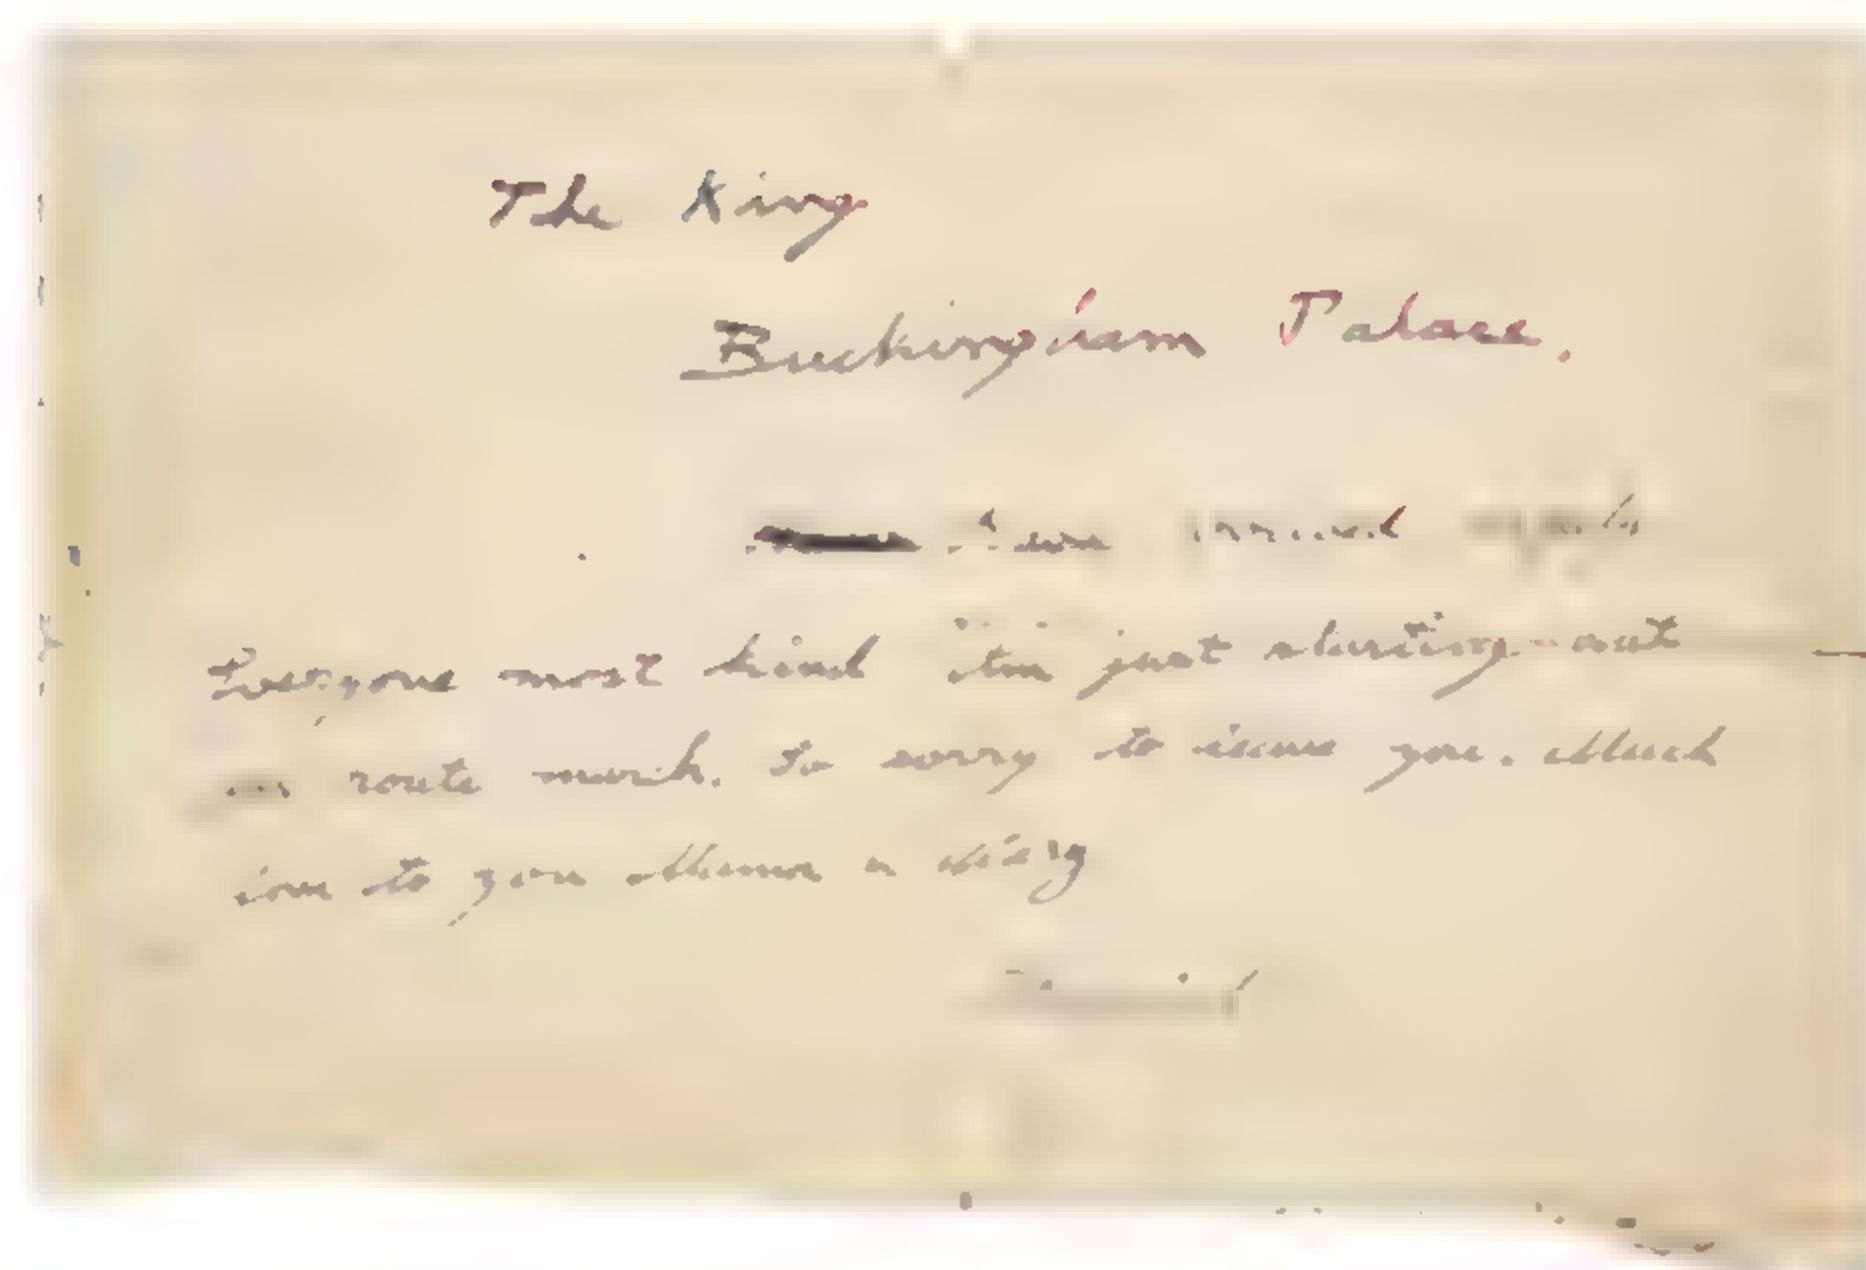 The King
Buckingham Palace.
Have arrived
Everyone most kind Am just starting out
on route march. So sorry to leave you. Much
love to you Mama &